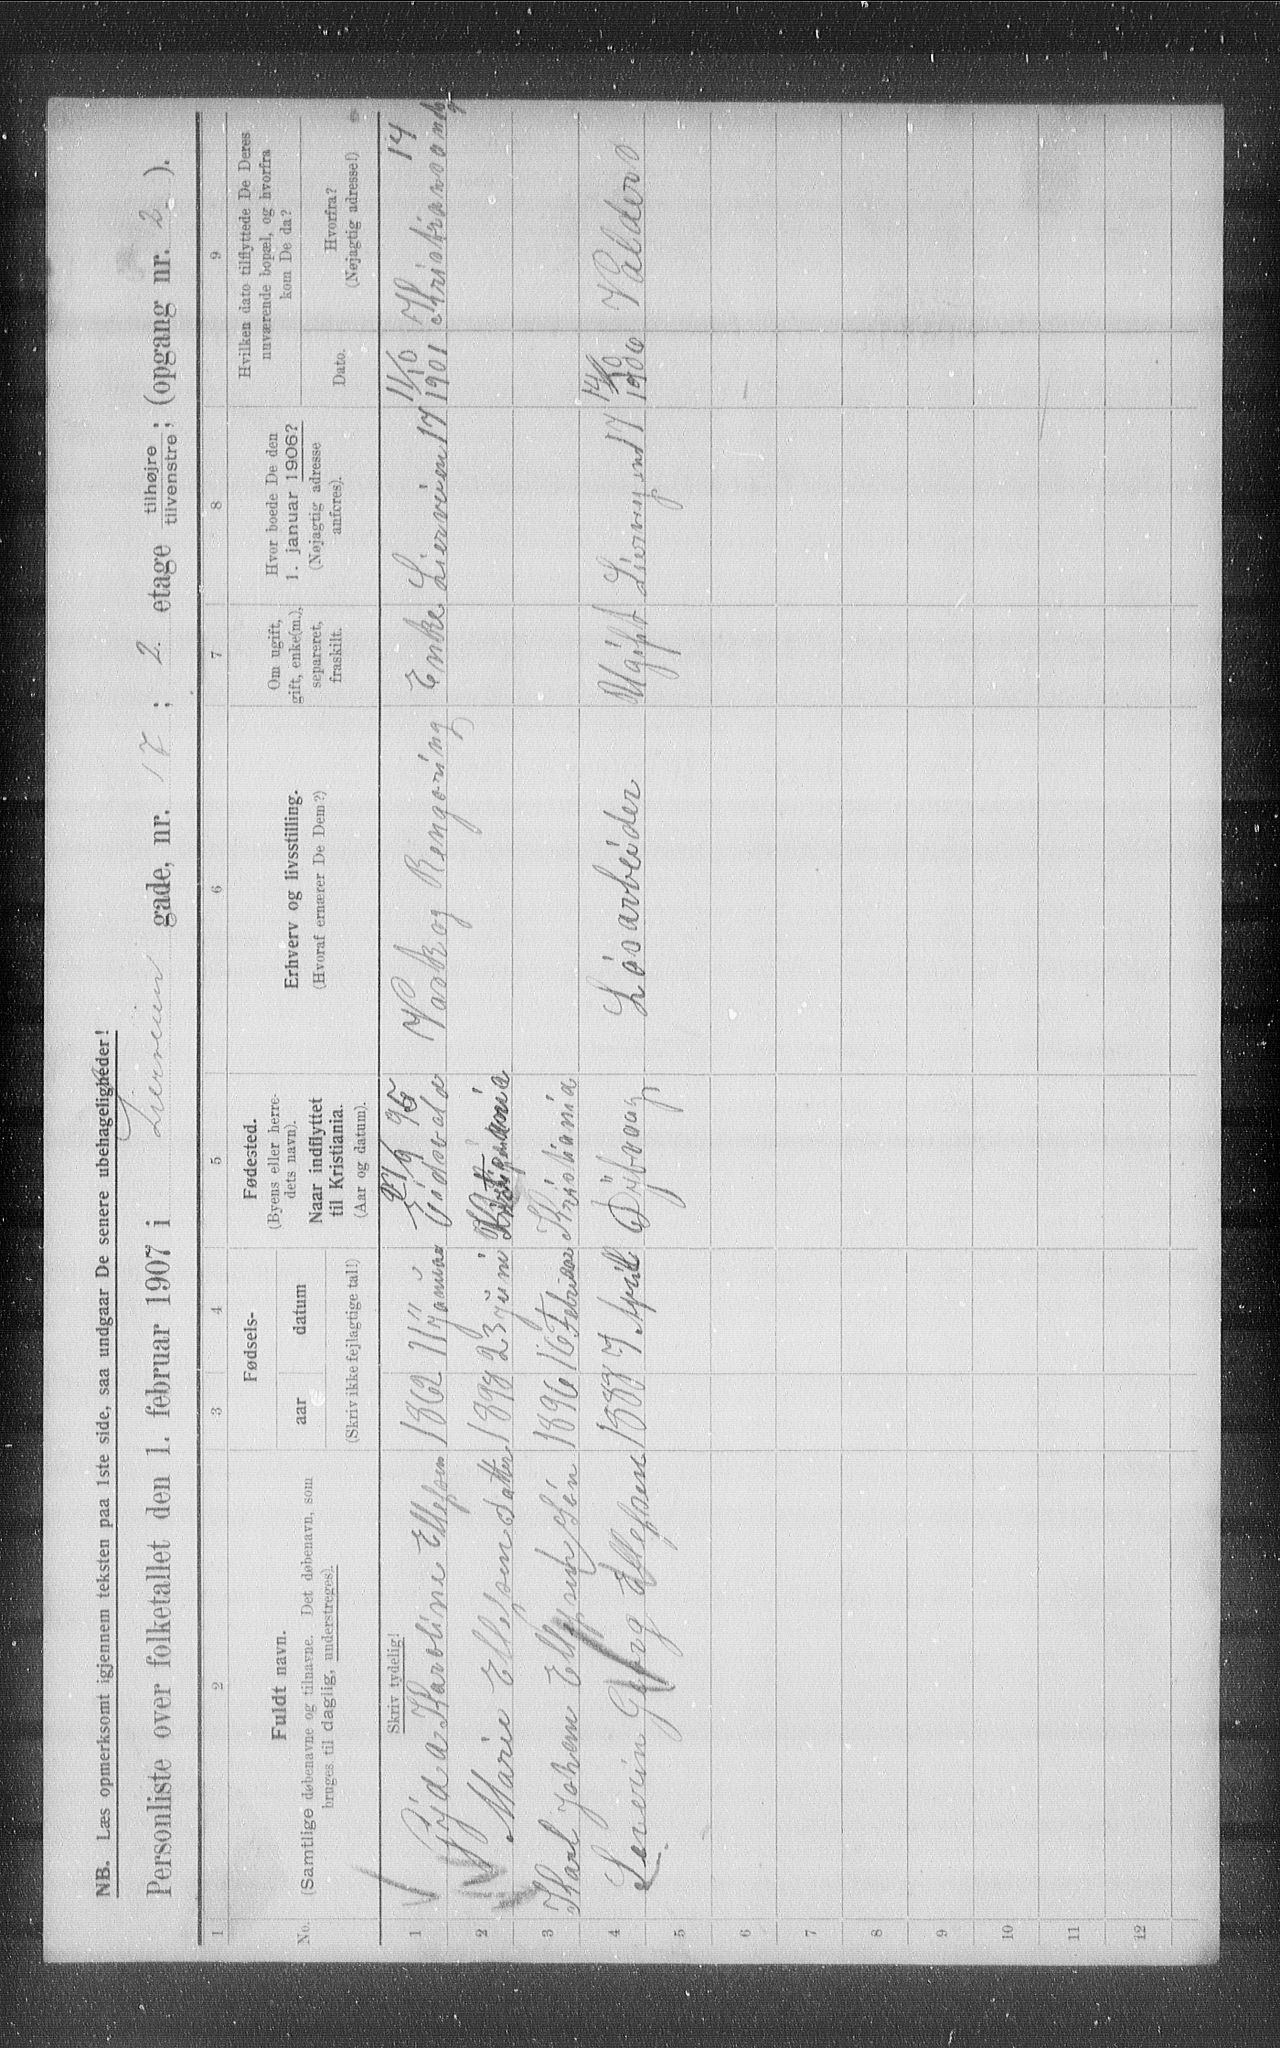 NB. Læs opmerksomt igjennem teksten paa 1ste side, saa undgaar De senere ubehageligheder!
Personliste over folketallet den 1. februar 1907 i Lierveien gade, nr. 17; 2. etage tilhøjre tilvenstre; (opgang nr. 2).
1 2 3 4 5 6 7 8 9
No. Fuldt navn. (Samtlige døbenavne og tilnavne. Det døbenavn, som bruges til daglig, understreges).
Fødsels- aar datum (Skriv ikke fejlagtige tal!)
Fødested. (Byens eller herredets navn). Naar indflyttet til Kristiania. (Aar og datum).
Erhverv og livsstilling. (Hvoraf ernærer De Dem?)
Om ugift, gift, enke(m.), separeret, fraskilt.
Hvor boede De den 1. januar 1906? (Nøjagtig adresse anføres).
Hvilken dato tilflyttede De Deres nuværende bopæl, og hvorfra kom De da?
Dato. Hvorfra? (Nøjagtig adresse!)
Skriv tydelig!
1 Karoline Ellefsen 1862 11 Januar Eidsvold Vask og Rengøring Enke Lierveien 17 11/10 1901 14
2 Marie Ellefsen datter 1898 23 juni Kristiania
3 Karl Johan Ellefsen Søn 1896 16 Februar Kristiania
4 Severin Georg Ellefsen 1888 7 April Dybvaag Løsarbeider Ugift 17 14/10 1906 Valders
5
6
7
8
9
10
11
12